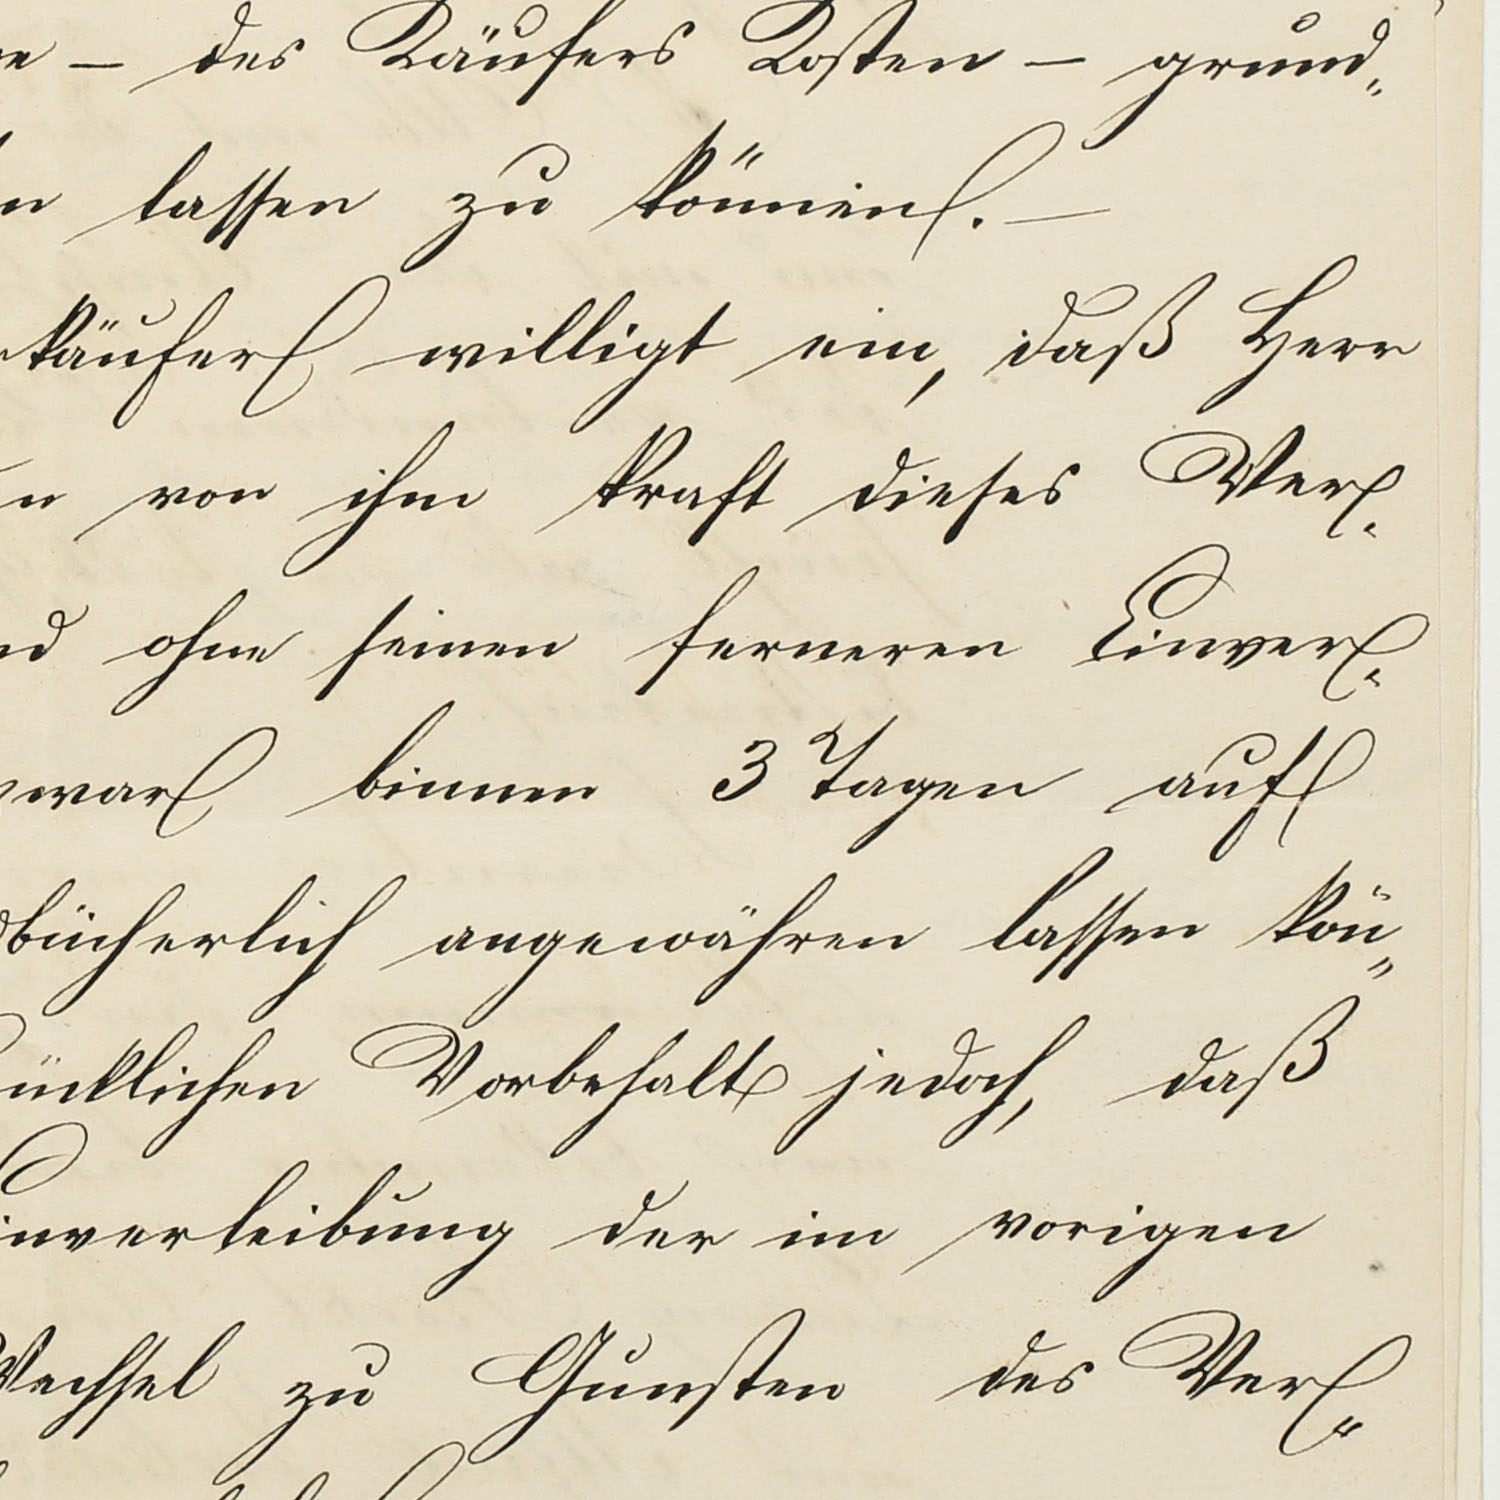 des Käufers Kosten — grund„
lassen zu können. —
käufer willigt ein, daß Herr
von ihm kraft dieses Ver„
ohne seinen ferneren Einver„
zwar binnen 3 Tagen auf
bücherlich angewähren lassen kön„
ücklichen Vorbehalt jedoch, daß
inverleibung der im vorigen
Wechsel zu Gunsten des Ver„